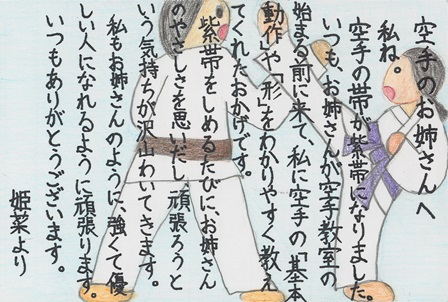 空手のお姉さんへ
私ね、
空手の帯が紫帯になりました。
いつも、お姉さんが空手教室の
始まる前に来て、私に空手の「基本
動作」や「形」をわかりやすく教え
てくれたおかげです。
紫帯をしめるたびに、お姉さん
のやさしさを思いだし頑張ろうと
いう気持ちが沢山わいてきます。
私もお姉さんのように、強くて優
しい人になれるように頑張ります。
いつもありがとうございます。
姫菜より